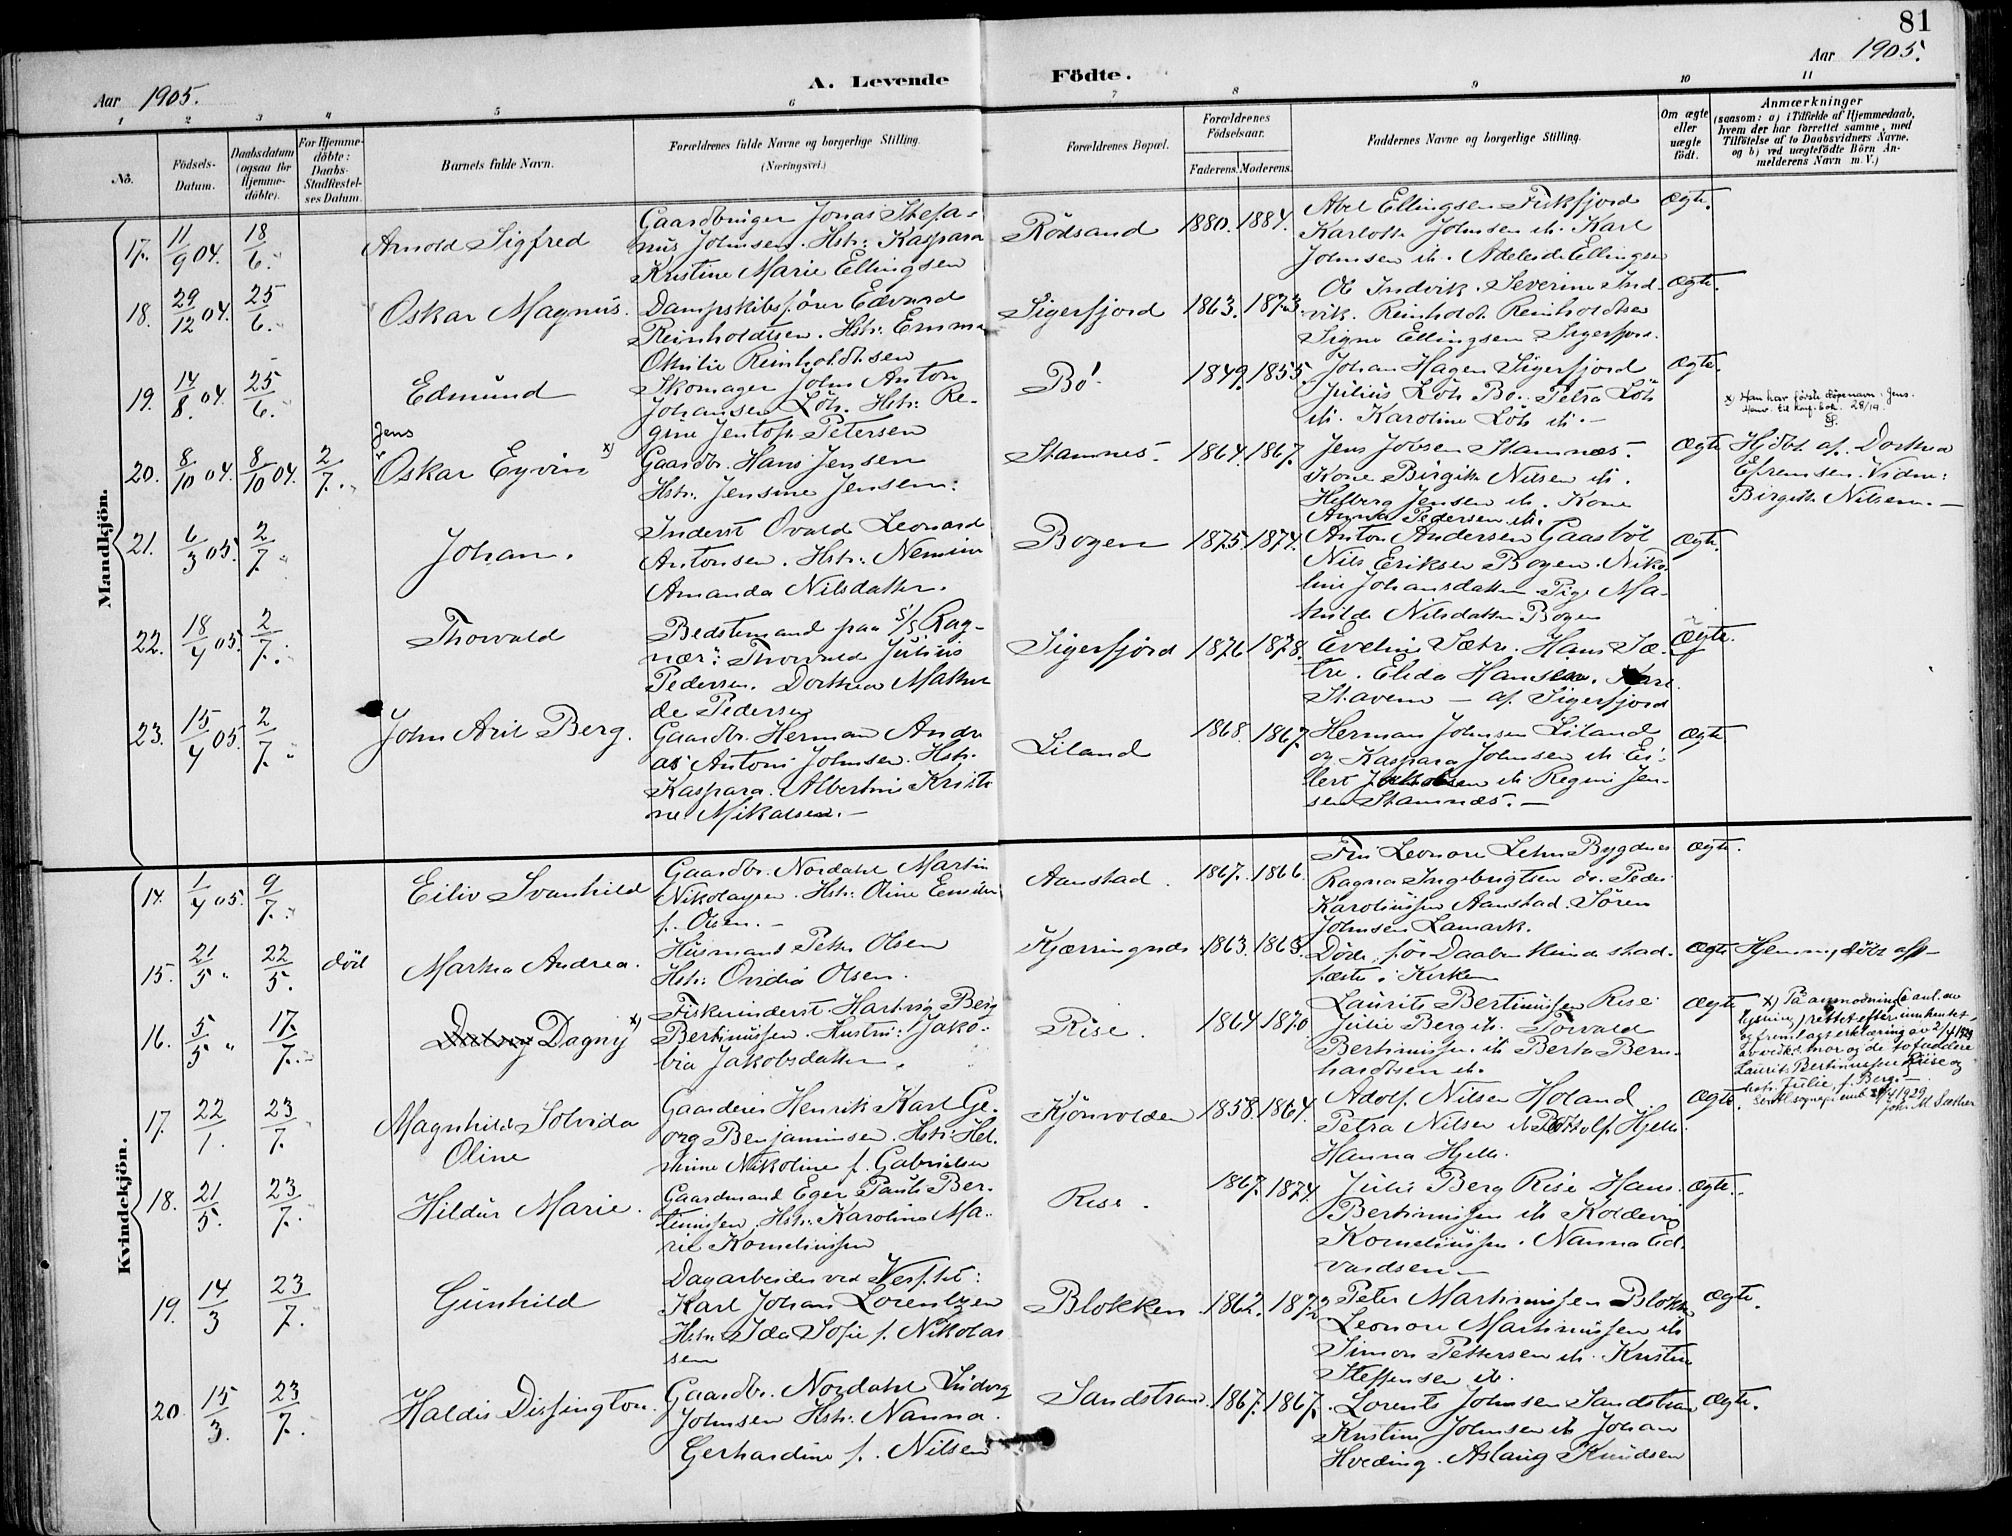 81
Aar 1905.
A. Levende Födte.
Aar 1905.
1 2 3 4 5 6 7 8 9 10 11
No.
Födsels-Datum.
Daabsdatum (ogsaa for Hjemme-döbte).
For Hjemme-döbte: Daabs-Stadfæstel-ses Datum.
Barnets fulde Navn.
Forældrenes fulde Navne og borgerlige Stilling (Næringsvei.)
Forældrenes Bopæl.
Forældrenes Födselsaar.
Faderens. Moderens.
Faddernes Navne og borgerlige Stilling.
Om ægte eller uægte födt.
Anmærkninger
(saasom: a) i Tilfælde af Hjemmedaab,
hvem der har forrettet samme, med
Tilföielse af to Daabsvidners Navne.
og b) ved uægtefödte Börn An-
melderens Navn m. V.)
Mandkjön.
17. 11/9 04. 18/6. Arnold Sigfred
Gaardbruger Jonas Stefa-
nus Johnsen. Hstr: Kaspara
Kristine Marie Ellingsen
Rödsand 1880. 1884.
Abel Ellingsen Fiskfjord
Karlotte Johnsen ib. Karl
Johnsen ib. Adeleide Ellingsen
Ægte.
18. 29/12 04. 25/6. Oskar Magnus.
Dampskibsförer Edvard
Reinholdtsen. Hstr: Emma
Othilie Reinholdtsen
Sigerfjord 1863. 1873.
Ol Indvik. Severine Ind-
vik. Reinholdt Reinholdtsen
Signe Ellingsen Sigerfjord.
Ægte.
19. 14/8. 04. 25/6. Edmund
Skomager John Anton
Johansen Löh. Hstr: Re-
gine Jentoft Petersen
Bö 1849. 1855.
Johan Hagen Sigerfjord
Julius Löh Bö. Petra Löh
ib. Karoline Löh ib.
Ægte.
x) Han har første döpenavn: Jens.
20. 8/10 04. 8/10 04. 2/7. Jens Oskar Eyvin x)
Gaardbr. Hans Jensen
Hstr: Jensine Jensen.
Stamnes. 1864. 1867.
Jens Jobsen Stamnæs.
Kone Birgitte Nilsen ib.
Helberg Jensen ib. Kone
Anna Pedersen ib.
Ægte
Hjdbt af Dorthea
Efremsen. Vidne:
Birgitte Nilsen.
21. 6/3 05. 2/7. Johan.
Inderst Ovald Leonard
Antonsen. Hstr:
Amanda Nilsdatter.
Bogen 1875. 1874.
Anton Andersen Gaasböl
Nils Eriksen Bogen. Niko-
line Johansdatter Pige Ma-
thilde Nilsdatter Bogen
Ægte.
22. 18/4 05. 2/7. Thorvald
Bedstemand paa S/S Rag-
nær: Thorvald Julius
Pedersen. Dorthea Mathil-
de Pedersen
Sigerfjord 1876 1878.
Eveline Sætre. Hans Sæ-
tre. Elida Hansen. Kare
Staven — af Sigerfjord
Ægte.
23. 15/4 05. 2/7. John Aril Berg.
Gaardbr. Herman Andre
as Antoni Johnsen. Hstr:
Kaspara Albertine Kristi
ne Mikalsen.
Liland 1868. 1867.
Herman Johnsen Liland
og Kaspara Johnsen ib. Ei-
lert Jakobsen ib. Regine Jen-
sen Stamnæs.
Ægte
Kvindekjön.
14. 1/4 05. 9/7. Eiliv Svanhild
Gaardbr. Nordahl Martin
Nikolaysen. Hstr: Oline
f. Olsen.
Aanstad. 1867. 1866.
Fru Leonore Lehn Bygdnes
Ragna Ingebrigtsen do. Peder
Karoliussen Aanstad. Sören
Johnsen Lamark.
Ægte.
15. 21/5 22/5. död Martha Andrea.
Husmand Peter Olsen
Hstr: Ovidia Olsen.
Kjærringnes 1863. 1863.
Döde, för Daaben kunde stad-
fæstes i Kirken
Ægte Hjemmedöbt af
16. 5/5 17/7. Dagny x)
Fiskerinderst: Hartvig Berg
Bertinussen. Hustru: Jako-
bia Jakobsdatter.
Rise. 1864 1870
Laurits Bertinussen Rise
Julie Berg ib. Torvald
Bertinussen ib Berta Bern-
hardtsen ib.
Ægte
x) På anmodning (e anl. av
lysning) rettet efter innhentet
og fremlagt erklæring av 2/4 1929
av vedk. mor og de to faddere
Laurits Bertinussen Riise og
hstr. Julie, f. Berg.
John M. Sæther
17. 22/1. 23/7. Magnhild Solvida
Oline
Gaardeier Henrik Karl Ge-
org Benjaminsen. Hstr: Hel-
mine Nikoline f. Gabrielsen
Kjönvolden 1858. 1864.
Adolf Nilsen Holand
Petra Nilsen ib Rottolf Hjelle.
Hanna Hjelle.
Ægte.
18. 21/5. 23/7. Hildur Marie.
Gaardmand Eger Pauli Ber-
tinussen. Hstr: Karoline Ma-
rie Korneliussen
Rise. 1867. 1874.
Julie Berg Rise Hans
Bertinussen ib Koldevin
Korneliussen. Nanna Ed-
vardsen
Ægte.
19. 14/3 23/7. Gunhild
Dagarbeider ved Verftet:
Karl Johan Lorentzen
Hstr: Ida Sofie f. Nikolai
sen
Blokken 1862. 1872
Peter Martinussen Blokken
Leonore Martinussen ib
Simon Pettersen ib. Kristine
Steffensen ib.
Ægte.
20. 15/3. 23/7. Haldis Dissington.
Gaardbr. Nordahl Ludvig
Johnsen Hstr: Nanna
Gerhardine f. Nilsen
Sandstrand. 1867. 1867.
Lorents Johnsen Sandstrand
Kristine Johnsen ib Johan
Hveding. Aslaug Knudsen
Ægte.